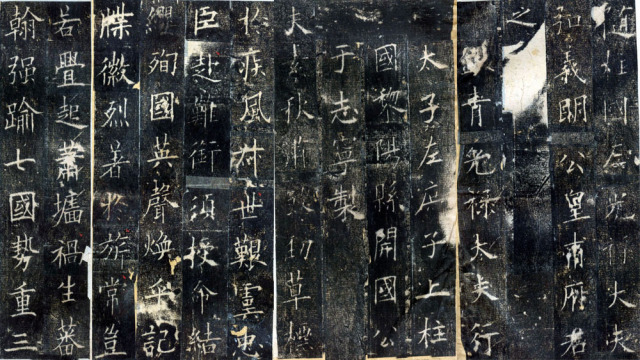 隨柱國左光祿大夫
弘義明公皇甫府君
之
青光祿大夫行
太子左庶子上柱
國黎陽縣開國公
于志寧製
夫素秋肅煞勁草標
於疾風叔世艱虞忠
臣赴難銜須授命結
纓殉國英聲煥乎記
牒徽烈著於旂常豈
若舋起蕭墻禍生蕃
翰强踰七國勢重三